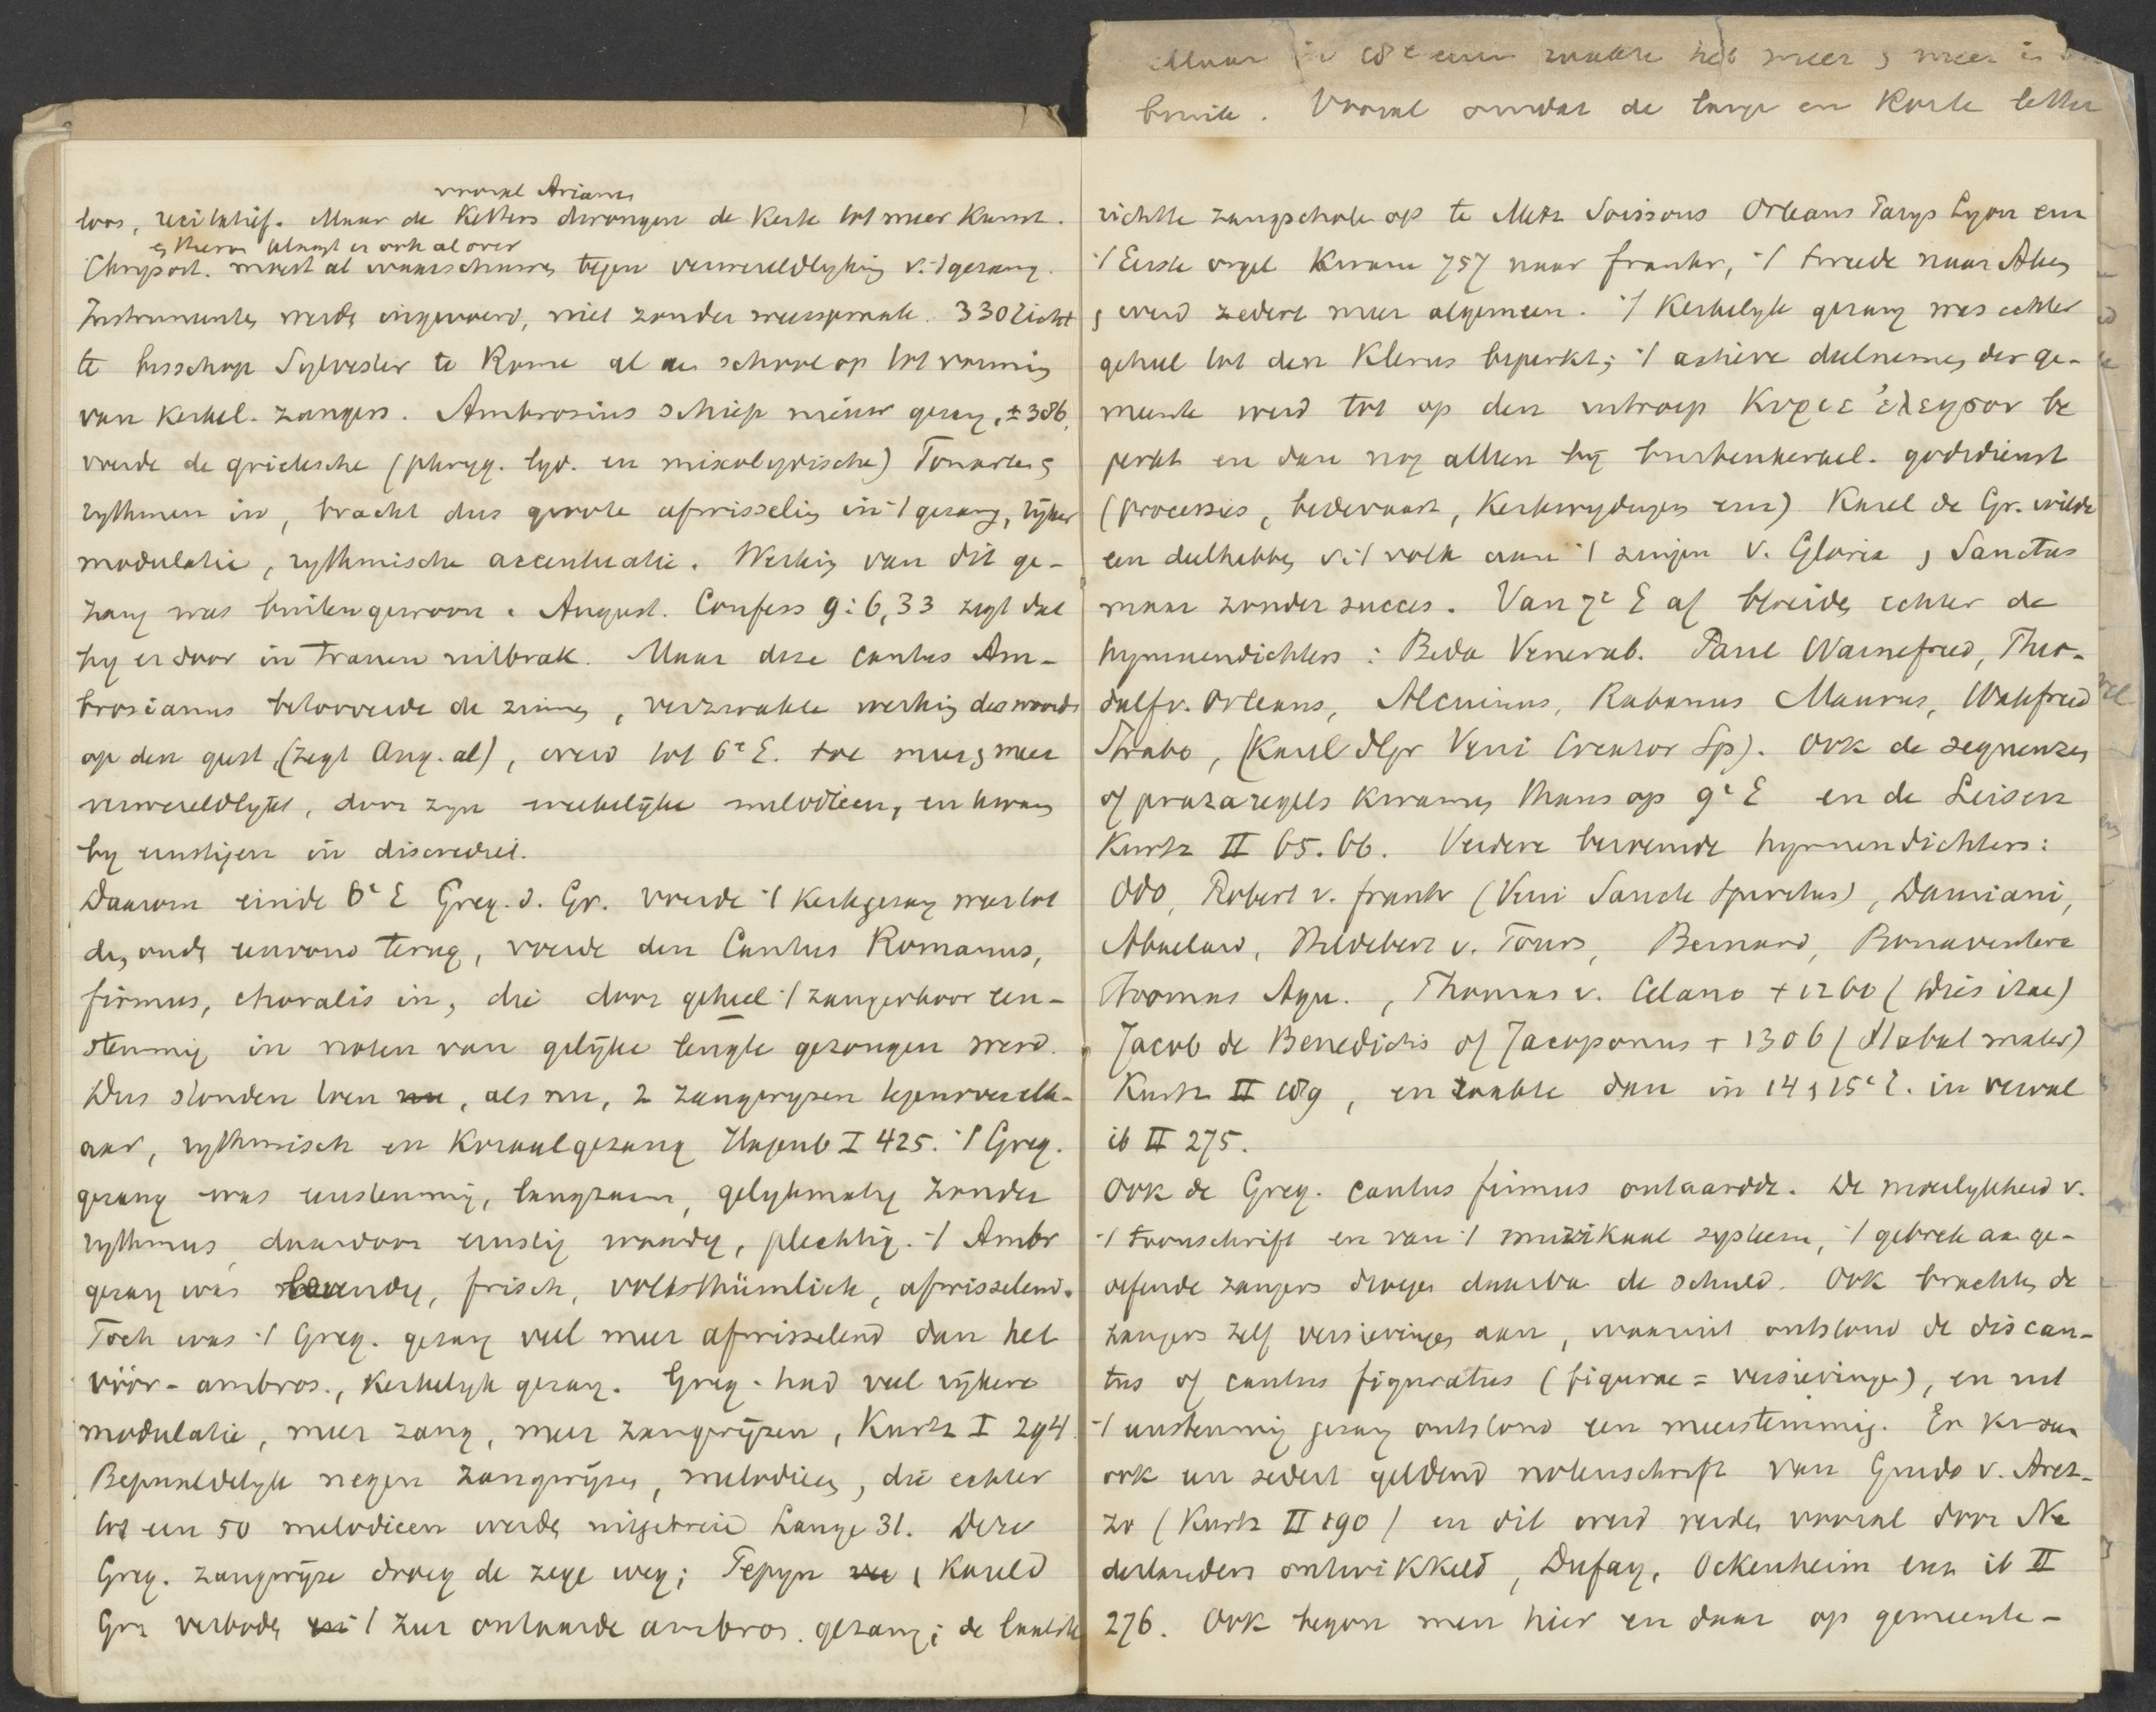 vooral Arianen
loos, recitatief. Maar de Ketters drongen de Kerk tot meer Kunst.
klaagt er ook al over
Chrysost. moest al waarschuwen tegen verwereldlyking v. 't gezang.
Instrumenten werden ingevoerd, niet zonder weerspraak. 330 richt
te bisschop Sylvester te Rome al een school op tot vorming
van kerkel. zangers. Ambrosius schiep nieuw gezang, ± 386,
voerde de grieksche (phryg. lyd. en mixolydische) Tonarten en
rythmen in, bracht dus groote afwisseling in 't gezang, rijker
modulatie, rythmische accentuatie. Werking van dit ge-
zang was buitengewoon. August. Confess 9:6,33 zegt dat
hy er door in tranen uitbrak. Maar deze cantus Am-
brosianus betooverde de zinnen, verzwakte werking des woords
op den geest, (zegt Aug. al), werd tot 6e E. toe meer en meer
verwereldlykt, door zyn wekelijke melodieen, en kwam
by ernstigen in discrediet.
Daarom einde 6e E Greg. d. Gr. voerde 't Kerkgezang weer tot
den ouden eenvoud terug, voerde den Cantus Romanus,
firmus, choralis in, die door geheel 't zangerkoor een-
stemmig in noten van gelijke lengte gezongen werd.
Dus stonden toen nu, als nu, 2 zangwyzen tegenover elk-
aar, rythmisch en Koraalgezang Hagenb I 425. 't Greg.
gezang was eenstemmig, langzaam, gelykmatig zonder
rythmus, daardoor ernstig waardig, plechtig. 't Ambr
gezang was levendig, frisch, volksthümlich, afwisselend.
Toch was 't Greg. gezang veel meer afwisselend dan het
vóór-ambros., Kerkelyk gezang. Greg. had veel rijkere
modulatie, meer zang, meer zangwijzen, Kurtz I 294.
Bepaaldelyk negen zangwijzen, melodieen, die echter
tot een 50 melodieen werden uitgebreid Lange 31. Deze
Greg. zangwijze droeg de zege weg; Pepyn en Karel d
Gr verboden 't zeer ontaarde ambros. gezang; de laatste
Maar in 18e eeuw raakte het meer en meer in on
bruik. Vooral omdat de lange en Korte letter
richtte zangscholen op te Metz Soissons Orleans Parys Lyon enz
't Eerste orgel kwam 757 naar frankr, 't tweede naar Aken
en werd zedert meer algemeen. 't Kerkelyk gezang was echter
geheel tot den Klerus beperkt; 't actieve deelnemen der ge-
meente werd tot op den uitroep Κυριε ἐλεησον be
perkt en dan nog alleen bij buitenkerkel. godsdienst
(processies, bedevaart, Kerkwydingen enz) Karel de Gr. wilde
een deelhebben v. 't volk aan 't zingen v. Gloria en Sanctus
maar zonder succes. Van 7e E af bloeiden echter de
hymnendichters: Beda Venerab. Paul Warnefried, Theo-
dulf v. Orleans, Alcuinus, Rabanus Maurus, Walafried
Strabo, (Karel d Gr Veni Creator Sp). Ook de sequenzen
of prozaregels kwamen thans op 9e E en de Leisen
Kurtz II 65.66. Verdere beroemde hymnendichters:
Odo, Robert v. frankr (Veni Sancte Spiritus), Damiani,
Abaelard, Hildebert v. Tours, Bernard, Bonaventura
Thomas Aqu., Thomas v. Celano + 1260 (Dies irae)
Jacob de Benedictis of Jacoponus + 1306 (Stabat mater)
Kurtz II 189, en raakte dan in 14 en 15e E. in verval
ib II 275.
Ook de Greg. cantus firmus ontaardde. De moeilykheid v.
't toonschrift en van 't muzikaal systeem, 't gebrek aan ge-
oefende zangers droegen daarvan de schuld. Ook brachten de
zangers zelf versieringen aan, waaruit ontstond de discan-
tus of cantus figuratus (figurae = versieringen), en uit
't eenstemmig gezang ontstond een meerstemmig. Er kwam
ook een zedert geldend notenschrift van Guido v. Arez-
zo (Kurtz II 190) en dit werd verder vooral door Ne
derlanders ontwikkeld, Dufay, Ockenheim enz ib II
276. Ook begon men hier en daar op gemeente-